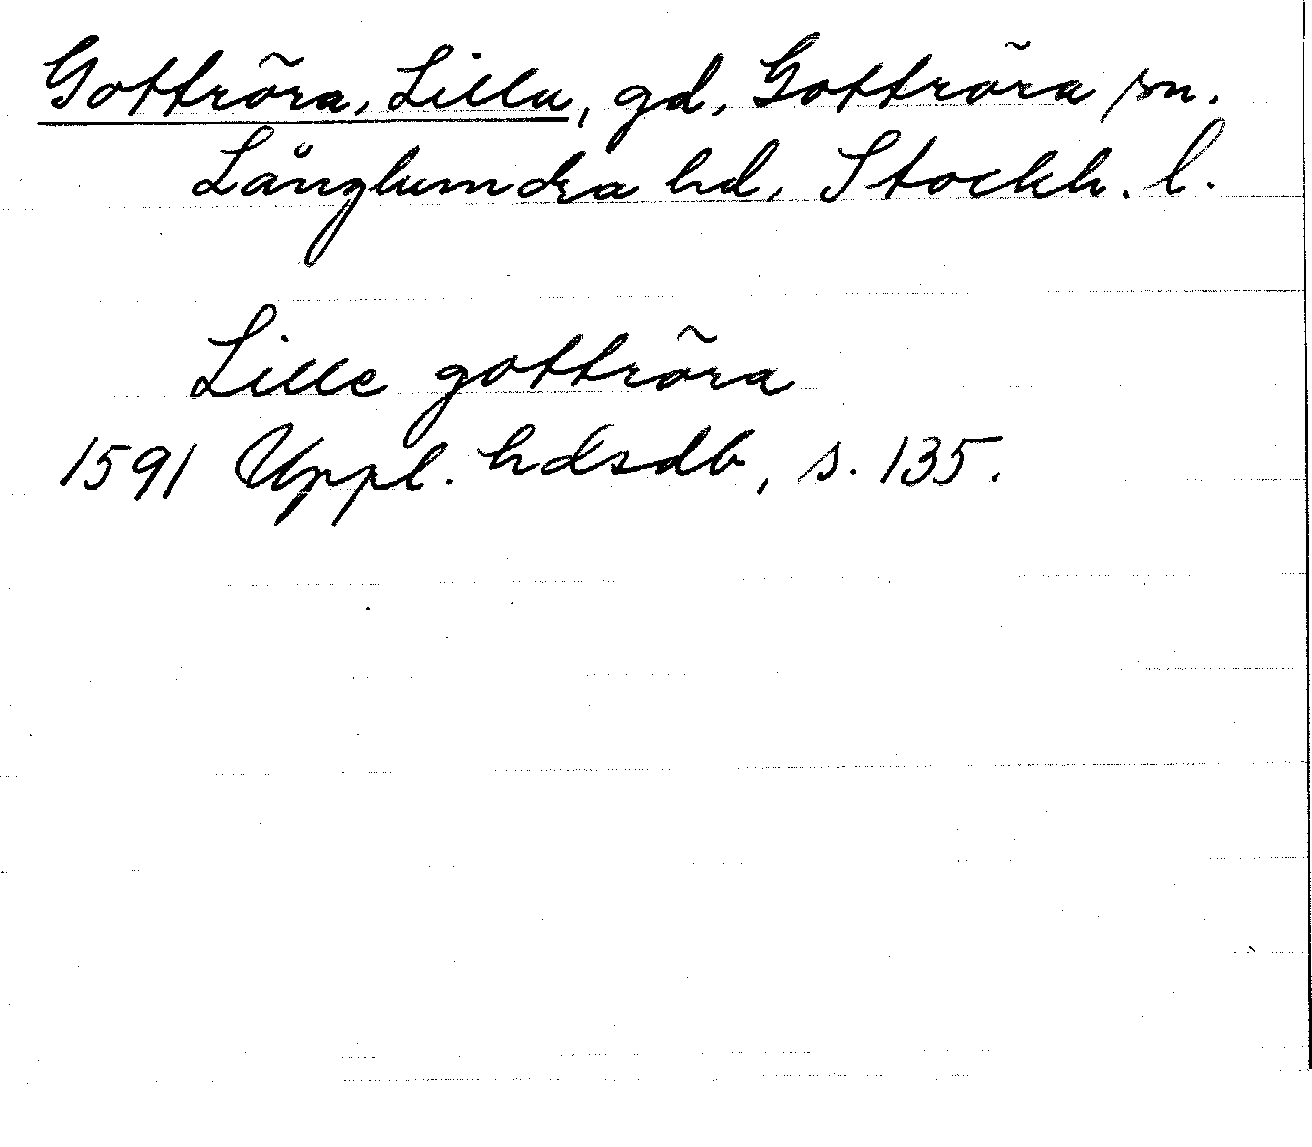 Gottröra, Lilla, gd, Gottröra sn.
Långlumdra hd, Stockh. l.
Lille gottröra
1591 Uppl. hdsdb, s. 135.